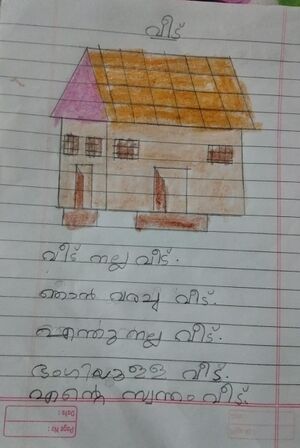 വീട്
വീട് നല്ല വീട്.
ഞാൻ വരച്ച വീട്.
എന്തു നല്ല വീട്.
ഭംഗിയുളള വീട്.
എന്റെ സ്വന്തം വീട്.
Page No :
Date :